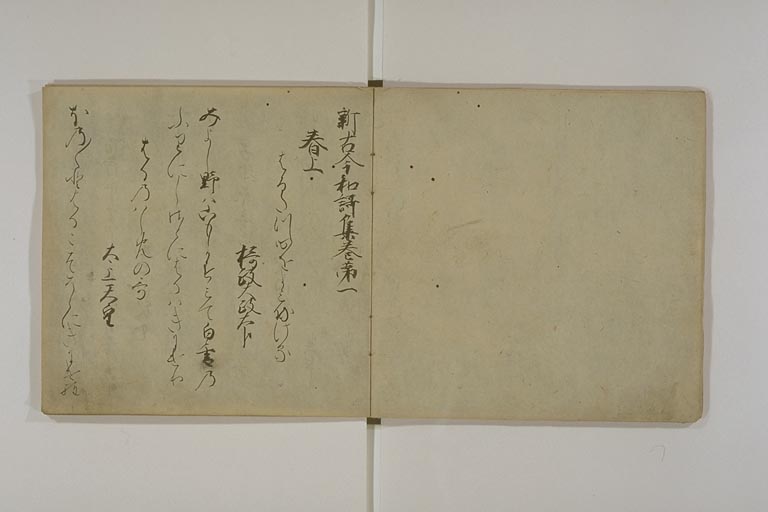 新古今和謌集巻第一
春上
はるたつ心をよみ侍ける
摂政太政大臣
みよし野は山もかすみて白雪の
ふりにしさとにはるはきにけり
はるのはしめの哥
太上天皇
ほの〱とはるこそそらにきにけらし